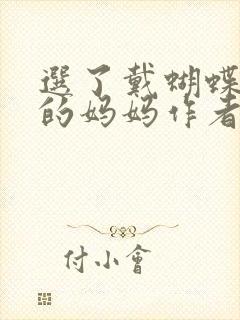 選了戴蝴蝶
的妈妈作者
付小會